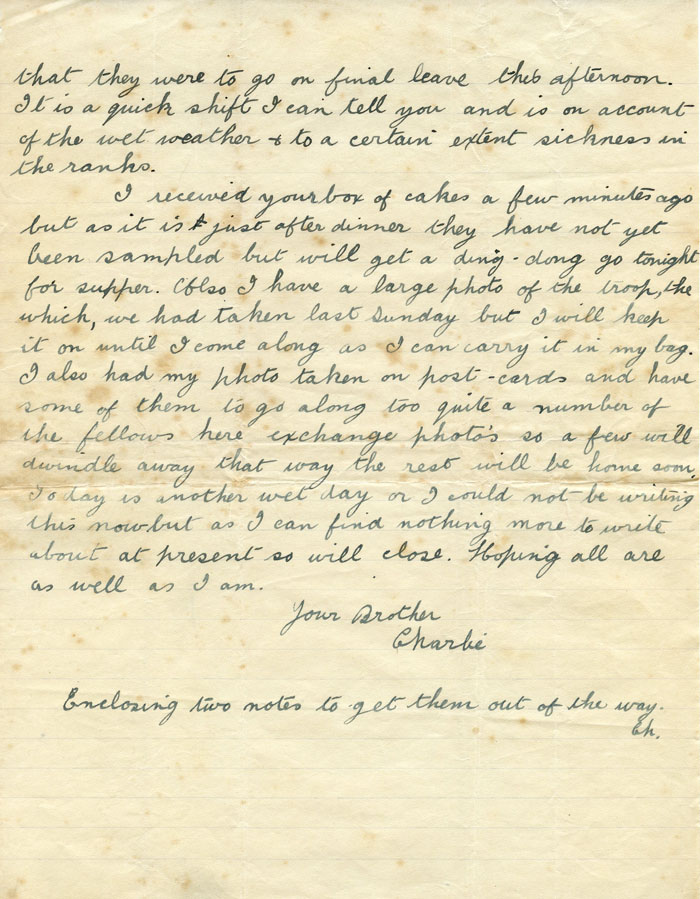 that they were to go on final leave this afternoon.
It is a quick shift I can tell you and is on account
of the wet weather & to a certain extent sickness in
the ranks.
I received your box of cakes a few minutes ago
but as it is just after dinner they have not yet
been sampled but will get a ding-dong go tonight
for supper. Also I have a large photo of the troop, the
which, we had taken last Sunday but I will keep
it on until I come along as I can carry it in my bag.
I also had my photo taken on post-cards and have
some of them to go along too quite a number of
the fellows here exchange photo's so a few will
dwindle away that way the rest will be home soon.
Today is another wet day or I could not be writing
this now but as I can find nothing more to write
about at present so will close. Hoping all are
as well as I am.
Your Brother
Charlie
Enclosing two notes to get them out of the way.
Ch.